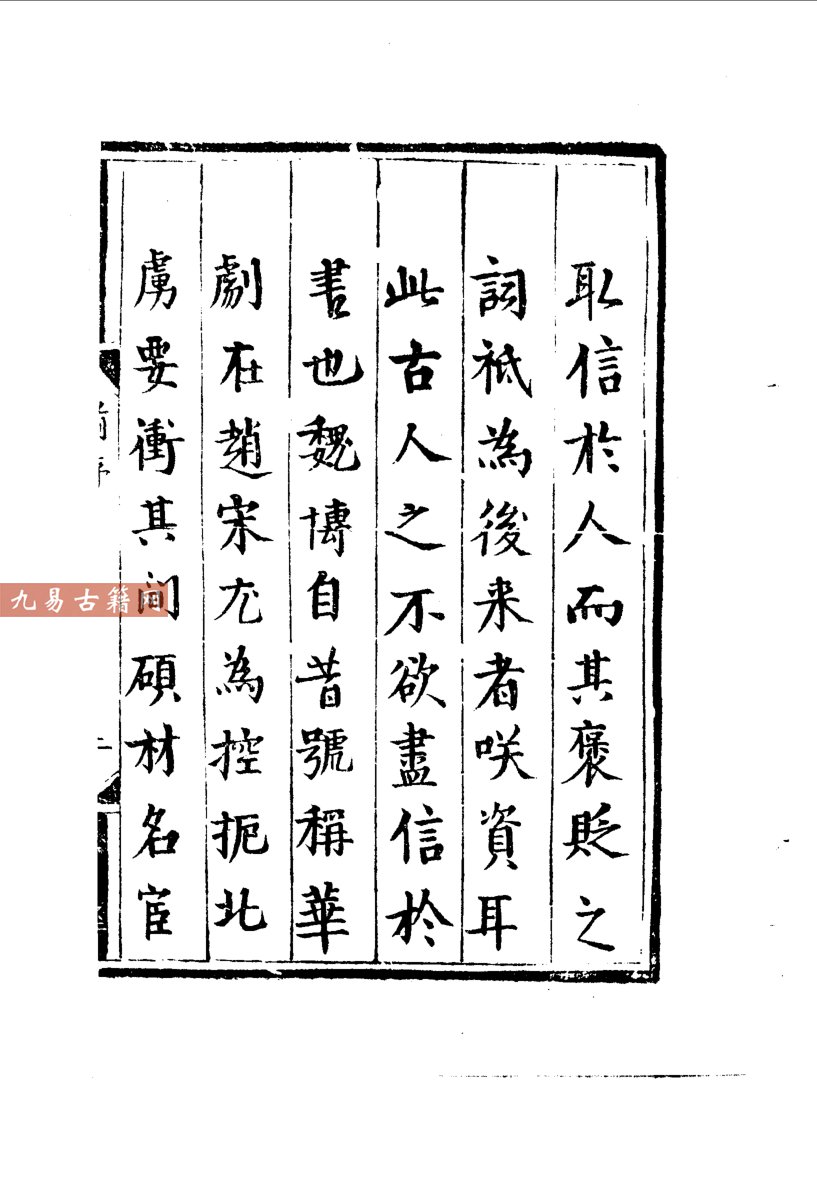 取信於人而其褒貶之
詞祇為後来者咲資耳
此古人之不欲盡信於
書也魏博自昔號稱華
劇在趙宋尤為控扼北
虜要衝其間碩材名宦
前序
二
九易古籍网